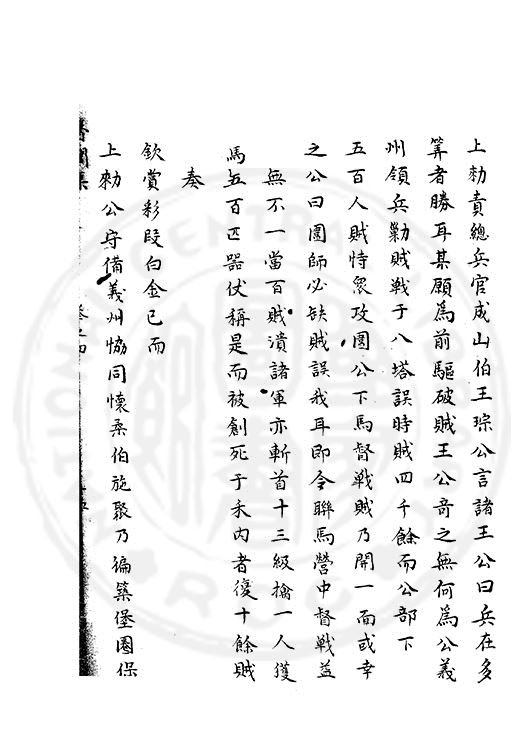 上勑責總兵官成山伯王琮公言諸王公曰兵在多
筭者勝耳某願為前驅破賊王公奇之無何為公義
州領兵勦賊戰于八塔誤時賊四千餘而公部下
五百人賊恃眾攻圍公下馬督戰賊乃開一面或幸
之公曰圍師必缺賊誤我耳即令聯馬營中督戰益
無不一當百賊潰諸軍亦斬首十三級擒一人獲
馬五百匹器仗稱是而被創死于禾內者復十餘賊
奏
欽賞彩段白金已而
上勑公守備義州恊同懷柔伯施聚乃徧築堡圈保